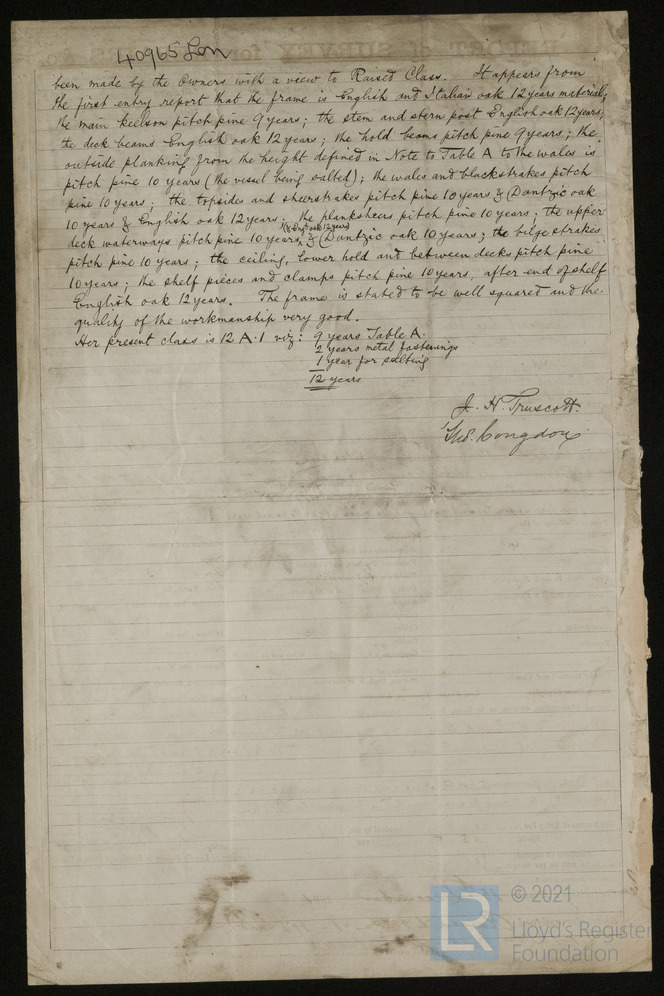 40965 Lon
been made by the Owners with a view to Raised Class. It appears from
the first entry report that the frame is English and Italian oak 12 years material;
the main keelson pitch pine 9 years; the stem and stern post English oak 12 years;
the deck beams English oak 12 years; the hold beams pitch pine 9 years; the
outside planking from the height defined in Note to Table A to the wales is
pitch pine 10 years (the vessel being salted); the wales and blackstrakes pitch
pine 10 years; the topsides and sheerstrakes pitch pine 10 years & Dantzic oak
10 years & English oak 12 years; the planksheers pitch pine 10 years; the upper
deck waterways pitch pine 10 years, & Dantzic oak 10 years; the bilge strakes
pitch pine 10 years; the ceiling, lower hold and between decks pitch pine
10 years; the shelf pieces and clamps pitch pine 10 years, after end of shelf
English oak 12 years. The frame is stated to be well squared and the
quality of the workmanship very good.
Her present class is 12 A.1 viz: 9 years Table A.
2 years metal fastenings
1 year for salting
12 years
J. H. Truscott.
Thos. Congdon
© 2021
LR
Lloyd's Register
Foundation